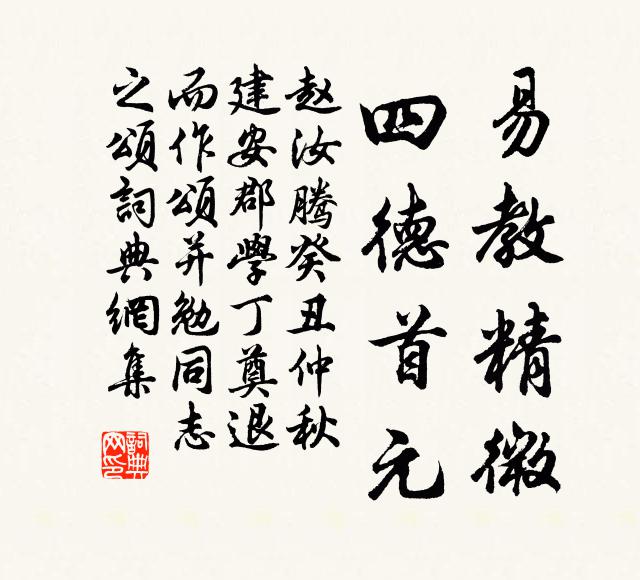 易教精微
四德首元
赵汝腾癸丑仲秋
建安郡學丁奠退
而作頌并勉同志
之頌詞典網集
詞典
网印